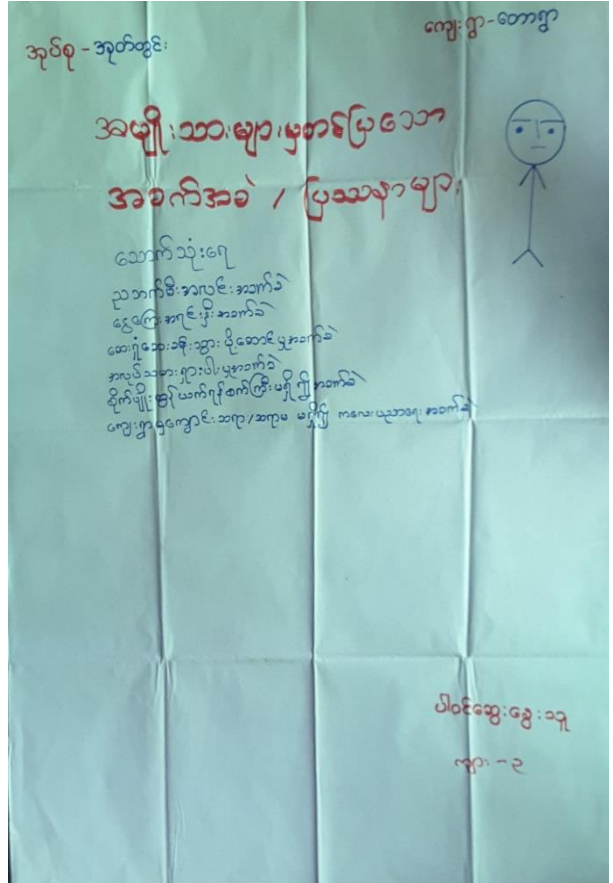 အုပ်စု - အုတ်တွင်း
ကျေးရွာ - တောရွာ
အမျိုးသားများမှတင်ပြသော
အခက်အခဲ / ပြဿနာများ
သောက်သုံးရေ
ညဘက်မီးအလင်းအခက်ခဲ
ငွေကြေးအရင်းနှီးအခက်ခဲ
ဆေးရုံဆေးခန်းသွား ပို့ဆောင်မှုအခက်ခဲ
အလုပ်သမားရှားပါးမှုအခက်ခဲ
စိုက်ပျိုးထွန်ယက်ရန်စက်ကြီးမရှိ၍အခက်ခဲ
ကျေးရွာမှကျောင်းဆရာ/ဆရာမ မရှိ၍ ကလေးပညာရေးအခက်ခဲ
ပါဝင်ဆွေးနွေးသူ
ကျား - ၃